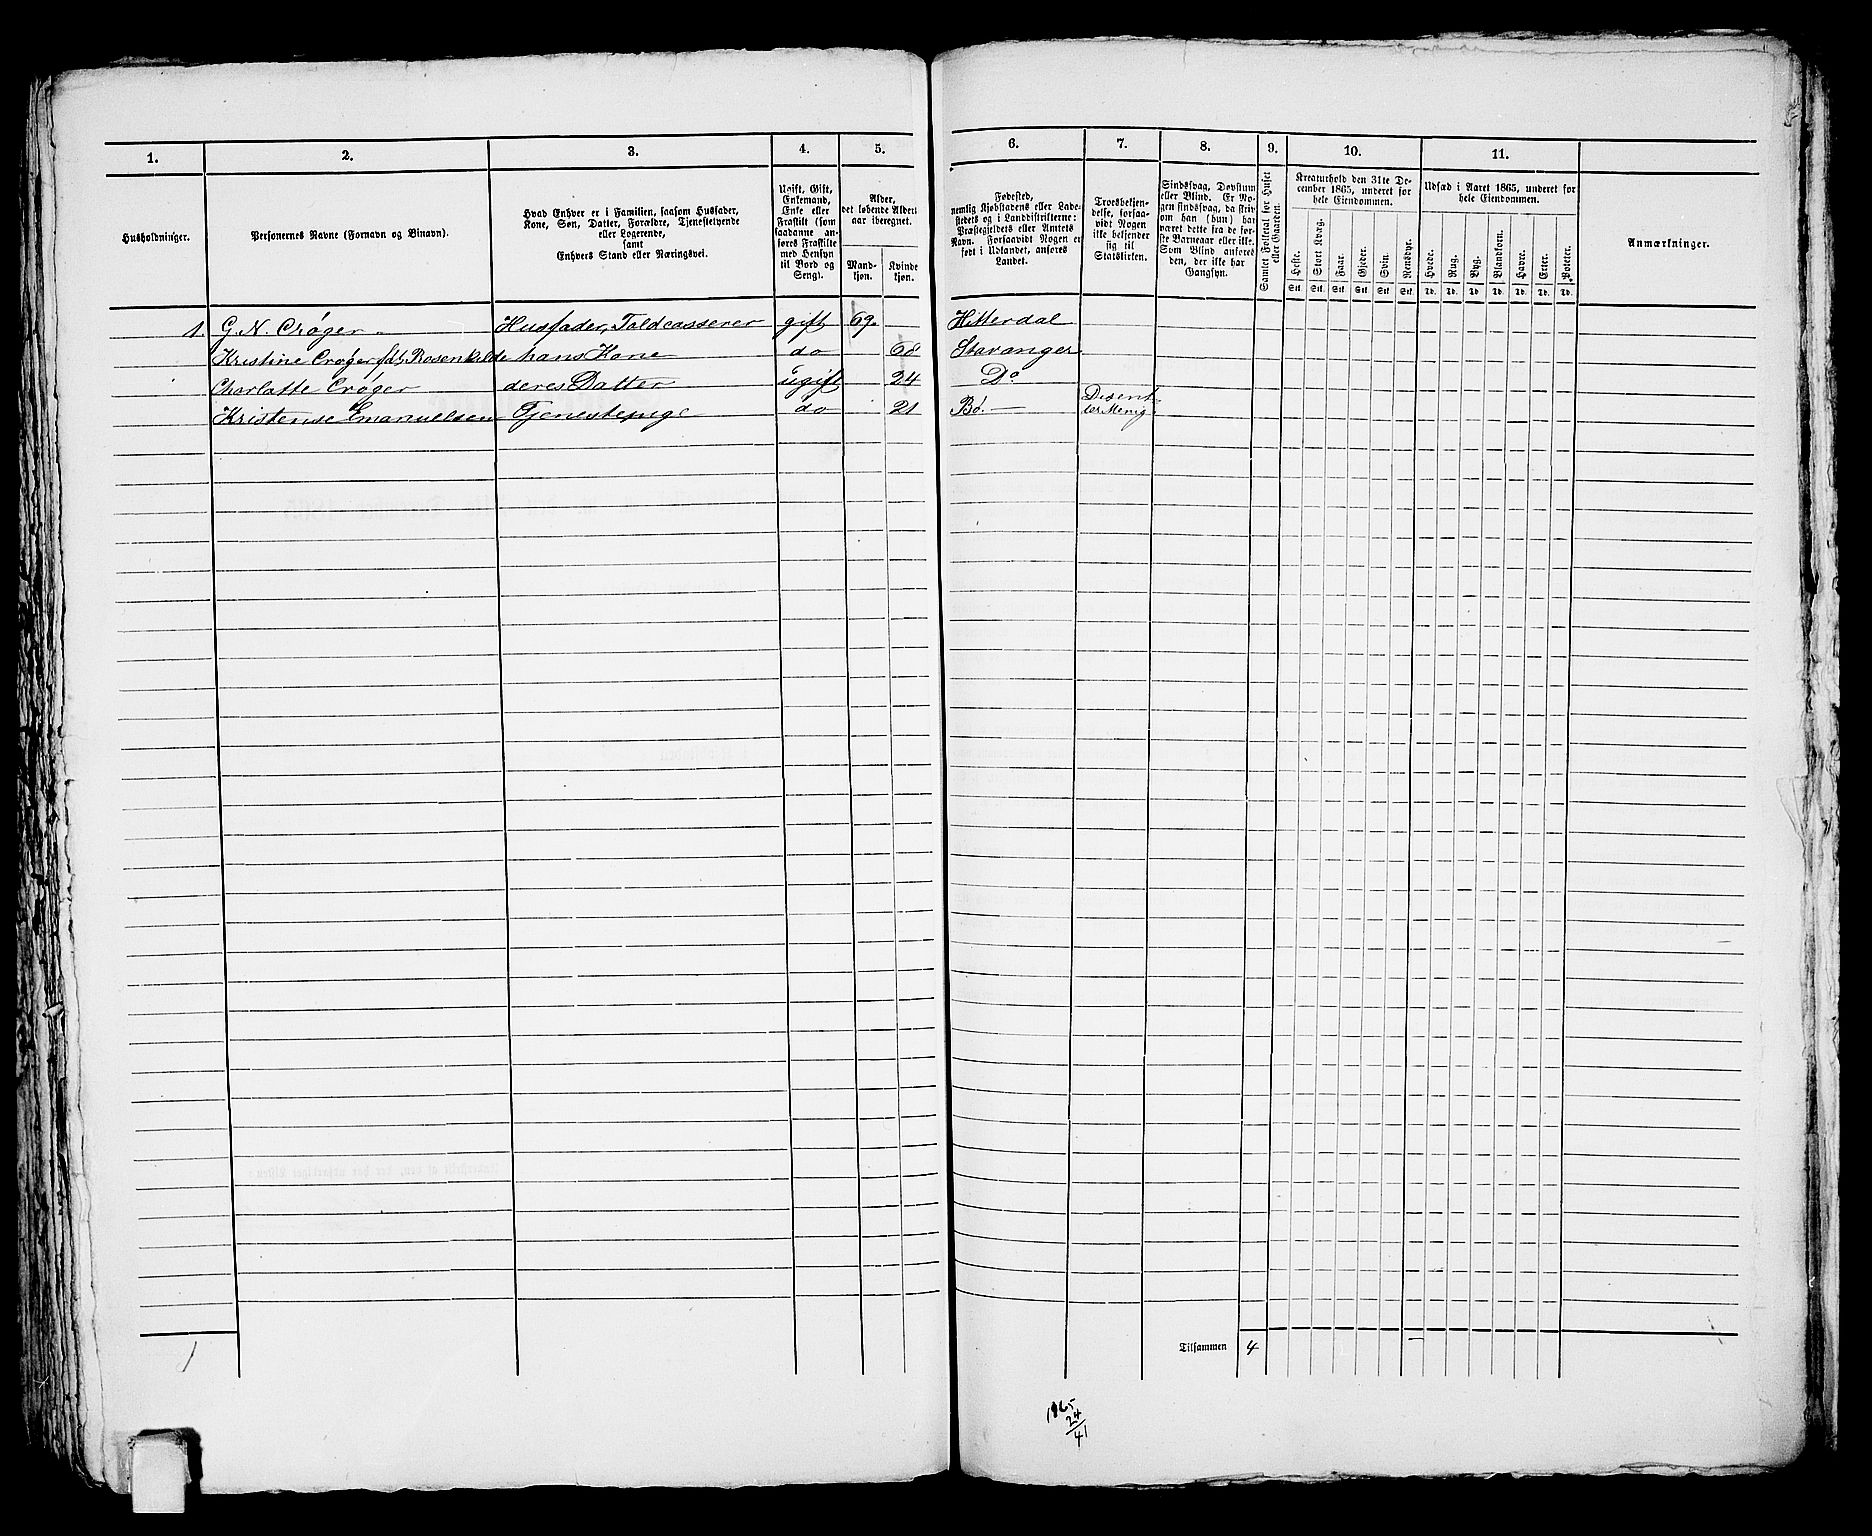 1. 2. 3. 4. 5. 6. 7. 8. 9. 10. 11.
Husholdninger.
Personernes Navne (Fornavn og Binavn).
Hvad Enhver er i Familien, saasom Husfader,
Kone, Søn, Datter, Forældre, Tjenestetyende
eller Logerende,
samt
Enhvers Stand eller Næringsvei.
Ugift, Gift,
Enkemand,
Enke eller
Fraskilt (som
saadanne an-
føres Fraskilte
med Hensyn
til Bord og
Seng).
Alder,
det løbende Alders-
aar iberegnet.
Mand-
kjøn.
Kvinde-
kjøn.
Fødested,
nemlig Kjøbstadens eller Lade-
stedets og i Landdistrikterne:
Præstegjeldets eller Amtets
Navn. Forsaavidt Nogen er
født i Udlandet, anføres
Landet.
Troesbekjen-
delse, forsaa-
vidt Nogen
ikke bekjender
sig til
Statskirken.
Sindssvag, Døvstum
eller Blind. Er No-
gen sindssvag, da skriv
om han (hun) har
været dette fra de før-
ste Barneaar eller ikke.
Som Blind anføres
den, der ikke har
Gangsyn.
Samlet Folketal for Huset
eller Gaarden.
Kreaturhold den 31te De-
cember 1865, underet for
hele Eiendommen.
Heste. Stort Kvæg. Faar. Gjeder. Svin. Rensdyr.
Stk. Stk. Stk. Stk. Stk. Stk.
Udsæd i Aaret 1865, underet for
hele Eiendommen.
Hvede. Rug. Byg. Blandkorn. Havre. Erter. Poteter.
Td. Td. Td. Td. Td. Td. Td.
Anmærkninger.
1. G. N. Crøger Husfader, Toldcasserer gift 69. Hitterdal
Kristine Crøger fdt Rosenkilde hans Kone do 68 Stavanger
Charlotte Crøger deres Datter ugift 24 Do
Kristense Emanuelsen Tjenestepige do 21 Bø. — Disent-
ter Menig.
1
Tilsammen 4
1865
24
41